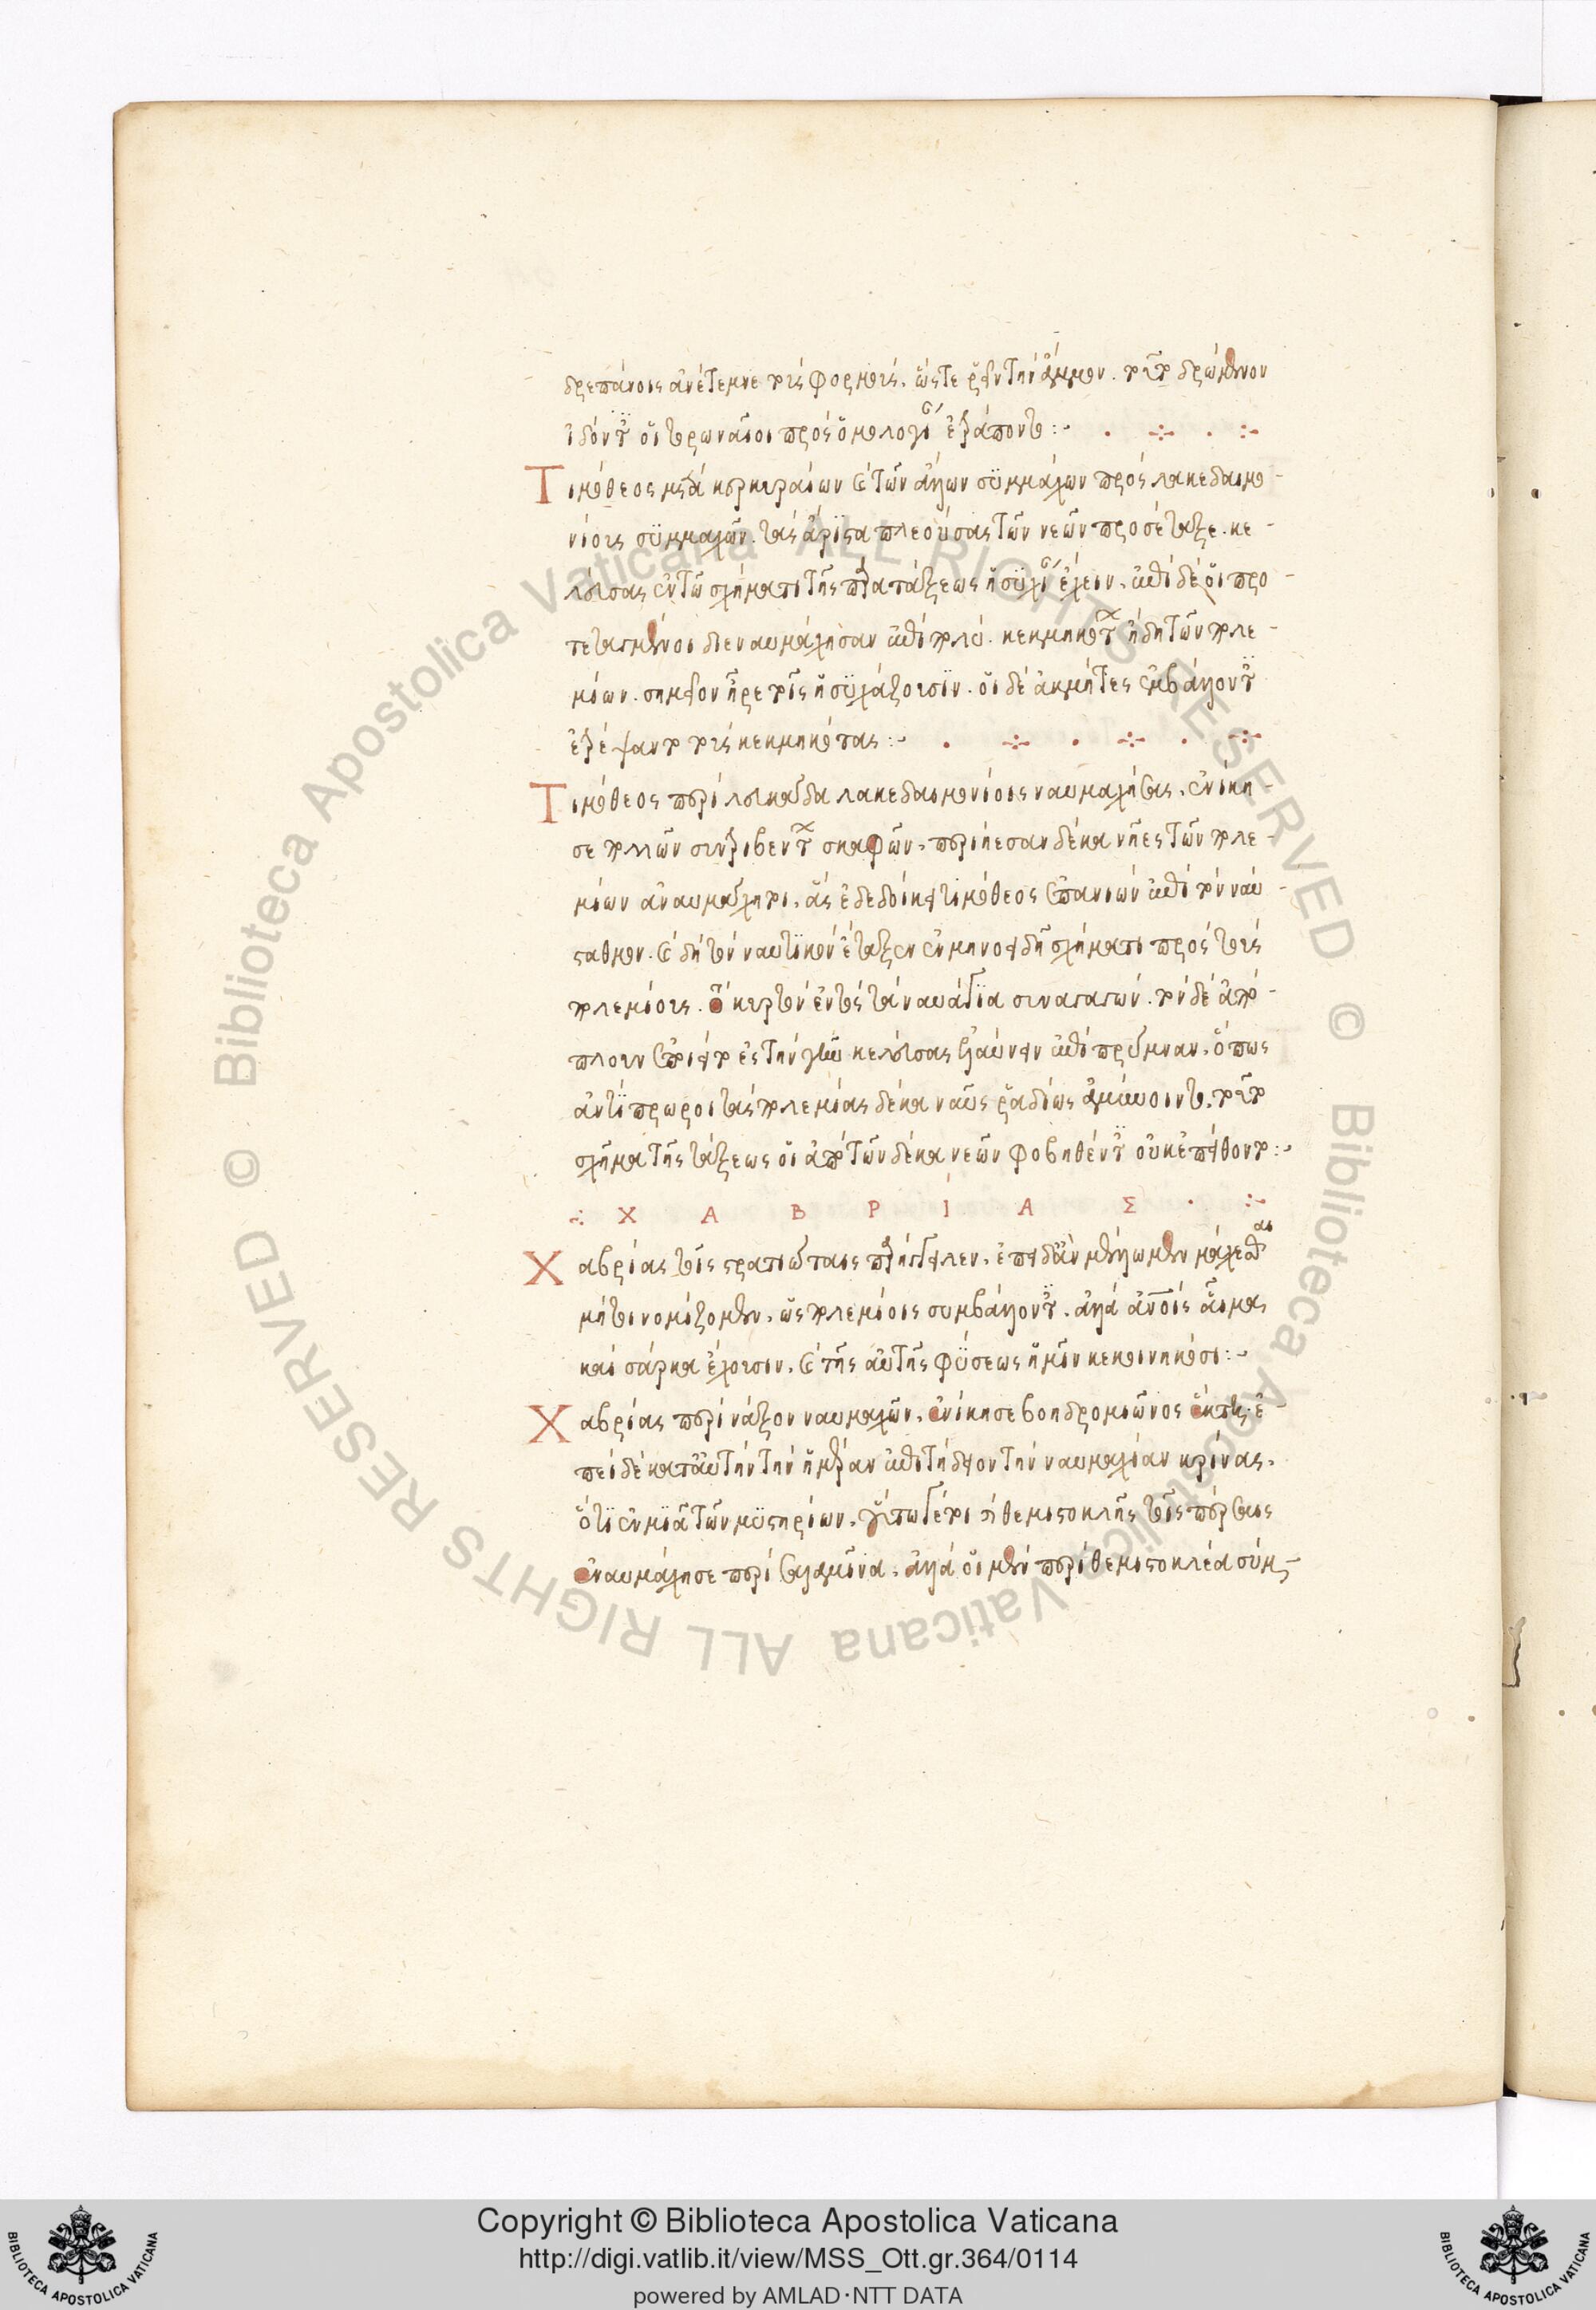 δρεπάνοις ἀνέτεμνε τοὺς φορμοὺς. ὥστε ῥεῖν τὴν ἄμμον. τοῦτο δρώμενον
ἰδόντες οἱ τορωναῖοι πρὸς ὁμολογίαν ἐτράποντο:
Τιμόθεος μετὰ κερκυραίων καὶ τῶν ἄλλων συμμάχων πρὸς λακεδαιμο-
νίους συμμαχῶν. τὰς ἄριστα πλεούσας τῶν νεῶν προσέταξε. κε-
λεύσας ἐν τῶ σχήματι τῆς παρατάξεως ἡσυχίαν ἔχειν. ἐπεὶ δὲ οἱ προ-
τεταγμένοι διεναυμάχησαν ἐπὶ πολὺ. κεκμηκότων ἤδη τῶν πολε-
μίων. σημεῖον ἦρε τοῖς ἡσυχάζουσιν. οἱ δὲ ἀκμῆτες ἐμβάλλοντες
ἐτρέψαντο τοὺς κεκμηκότας:
Τιμόθεος περὶ λευκάδα λακεδαιμονίοις ναυμαχήσας. ἐνίκη-
σε πολλῶν συντριβέντων σκαφῶν. περιήεσαν δέκα νῆες τῶν πολε-
μίων ἀναυμάχητοι. ἃς ἐδεδοίκει τιμόθεος ἐπανιὼν ἐπὶ τὸν ναύ-
σταθμον. καὶ δὴ τὸν ναυτικὸν ἔταξεν ἐν μηνοειδῆ σχήματι πρὸς τοὺς
πολεμίους. τὸ κυρτὸν ἐντὸς τὰ ναυάγια συναγαγών. τὸν δὲ ἀπό-
πλουν ἐποιεῖτο ἐς τὴν γῆν κελεύσας ἐλαύνειν ἐπὶ πρύμναν. ὅπως
ἀντίπρωροι τὰς πολεμίας δέκα ναῦς ῥαδίως ἀμύνοιντο. τοῦτο
σχῆμα τῆς τάξεως οἱ ἀπὸ τῶν δέκα νεῶν φοβηθέντες οὐκ ἐπείθοντο:
Χ Α Β Ρ Ί Α Σ
Χαβρίας τοῖς στρατιώταις παρήγγειλεν. ἐπειδὰν μέλλωμεν μάχεσθαι
μήτοι νομίζομεν. ὡς πολεμίοις συμβάλλοντες. ἀλλὰ ἀνοῖς αἷμα
καὶ σάρκα ἔχουσιν. καὶ τῆς αὐτῆς φύσεως ἡμῖν κεκοινηκόσι:
Χαβρίας περὶ νάξον ναυμαχῶν. ἐνίκησε βοηδρομιῶνος ἕκτη. ἐ
πεὶ δὲ κατ' αὐτὴν τὴν ἡμέραν ἐπιτήδειον τὴν ναυμαχίαν κρίνας.
ὅτι ἐν μιᾶ τῶν μυστηρίων. θεμιστοκλῆς τοῖς πέρσαις
ἐναυμάχησε περὶ σαλαμῖνα. ἀλλὰ οἱ μὲν περὶ θεμιστοκλέα σύμ-
Copyright © Biblioteca Apostolica Vaticana
http://digi.vatlib.it/view/MSS_Ott.gr.364/0114
powered by AMLAD·NTT DATA